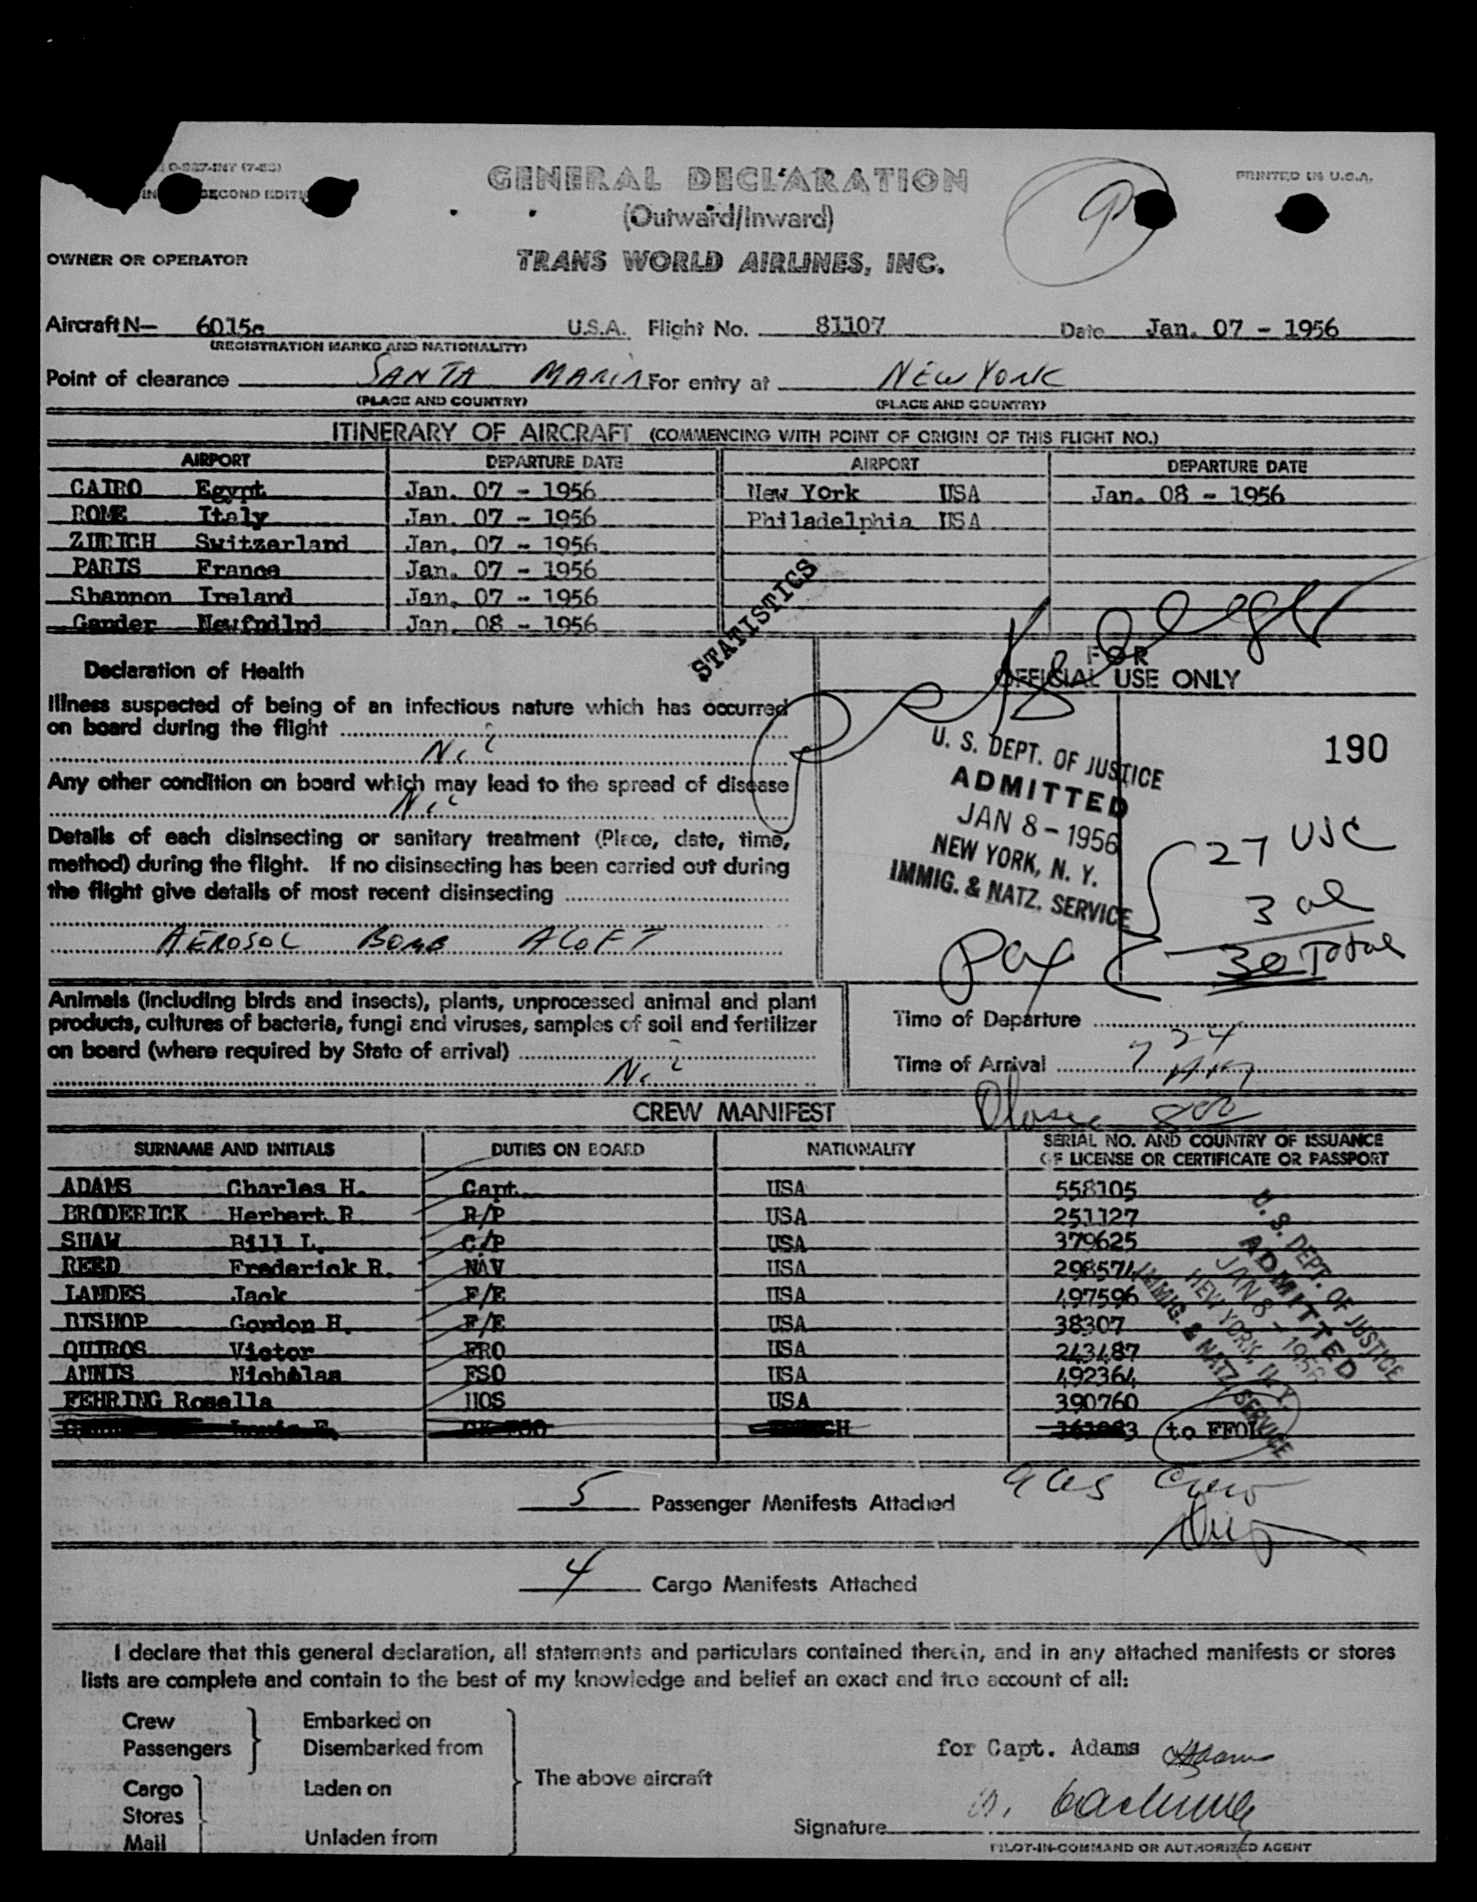 0-927-INT
SECOND EDITI
GENERAL DECLARATION
PRINTED IN U.S.A.
(Outward/Inward)
OWNER OR OPERATOR
TRANS WORLD AIRLINES, INC.
Aircraft N— 6015c U.S.A. Flight No. 81107 Date Jan. 07 - 1956
(REGISTRATION MARKS AND NATIONALITY)
Point of clearance SANTA MARIA For entry at NEW YORK
(PLACE AND COUNTRY) (PLACE AND COUNTRY)
ITINERARY OF AIRCRAFT (COMMENCING WITH POINT OF ORIGIN OF THIS FLIGHT NO.)
AIRPORT DEPARTURE DATE AIRPORT DEPARTURE DATE
CAIRO Egypt Jan. 07 - 1956 New York USA Jan. 08 - 1956
ROME Italy Jan. 07 - 1956 Philadelphia USA
ZURICH Switzerland Jan. 07 - 1956
PARIS France Jan. 07 - 1956
Shannon Ireland Jan. 07 - 1956
Gander Newfndlnd Jan. 08 - 1956
STATISTICS
Declaration of Health
FOR
OFFICIAL USE ONLY
Illness suspected of being of an infectious nature which has occurred
on board during the flight
Nil
Any other condition on board which may lead to the spread of disease
Nil
Details of each disinsecting or sanitary treatment (Place, date, time,
method) during the flight. If no disinsecting has been carried out during
the flight give details of most recent disinsecting
AEROSOL BOMB ALOFT
190
U. S. DEPT. OF JUSTICE
ADMITTED
JAN 8 - 1956
NEW YORK, N. Y.
IMMIG. & NATZ. SERVICE
27 USC
3 al
Pax 30 Total
Animals (including birds and insects), plants, unprocessed animal and plant
products, cultures of bacteria, fungi and viruses, samples of soil and fertilizer
on board (where required by State of arrival)
Nil
Time of Departure
Time of Arrival 724
800
CREW MANIFEST
SURNAME AND INITIALS DUTIES ON BOARD NATIONALITY SERIAL NO. AND COUNTRY OF ISSUANCE
OF LICENSE OR CERTIFICATE OR PASSPORT
ADAMS Charles H. Capt. USA 558105
BRODERICK Herbert R R/P USA 251127
SHAW Bill L. C/P USA 379625
REED Frederick R. NAV USA 298574
LANDES Jack F/E USA 497596
BISHOP Gordon H. F/E USA 38307
QUIROS Victor FRO USA 243487
ANNIS Nicholas FSO USA 492364
FEHRING Rosella HOS USA 390760
to FFOL
U. S. DEPT. OF JUSTICE
ADMITTED
JAN 8 - 1956
NEW YORK, N. Y.
IMMIG. & NATZ. SERVICE
5 Passenger Manifests Attached
9 Crew
4 Cargo Manifests Attached
I declare that this general declaration, all statements and particulars contained therein, and in any attached manifests or stores
lists are complete and contain to the best of my knowledge and belief an exact and true account of all:
Crew Embarked on
Passengers Disembarked from
Cargo Laden on
Stores
Mail Unladen from
The above aircraft
for Capt. Adams Adams
Signature
PILOT-IN-COMMAND OR AUTHORIZED AGENT